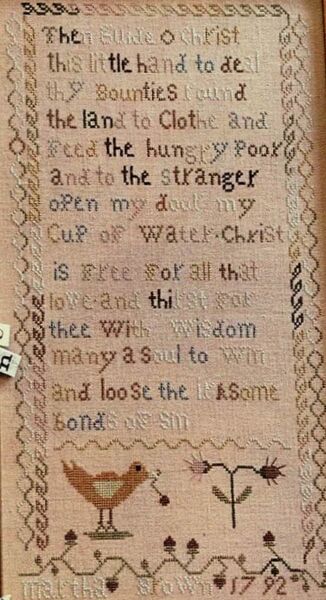 Then Guide O Christ
this little hand to deal
thy Bounties round
the land to Clothe and
Feed the hungry Poor
and to the stranger
open my door my
Cup of Water Christ
is Free For all that
love and thirst For
thee With Wisdom
many a soul to Win
and loose the some
Bonds of Sin
martha Brown 1792